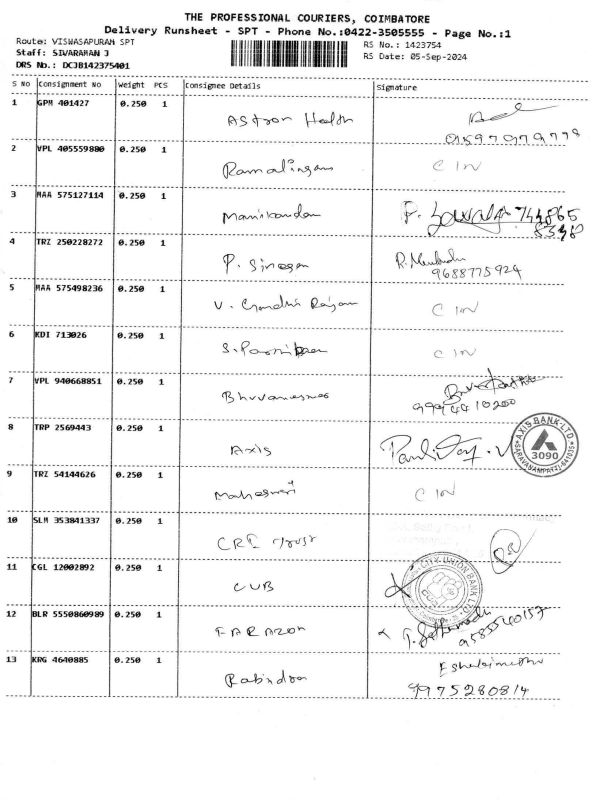 THE PROFESSIONAL COURIERS, COIMBATORE
Delivery Runsheet - SPT - Phone No.:0422-3505555 - Page No.:1
Route: VISWASAPURAM SPT
Staff: SIVARAMAN J
DRS No.: DCJB142375401
RS No.: 1423754
RS Date: 05-Sep-2024
S No Consignment No Weight PCS Consignee Details Signature
1 GPM 401427 0.250 1 Astron Health
2 VPL 405559880 0.250 1 Ramalingam C IN
3 MAA 575127114 0.250 1 Manikandan
4 TRZ 250228272 0.250 1 P. Sinegan
9688775924
5 MAA 575498236 0.250 1 V. Gandhi Rajan C IN
6 KDI 713026 0.250 1 C IN
7 VPL 940668851 0.250 1 Bhuvaneswar
9994410200
8 TRP 2569443 0.250 1 Axis
AXIS BANK LTD
3090
9 TRZ 54144626 0.250 1 Maheswari C IN
10 SLM 353841337 0.250 1 CRE Trust
11 CGL 12002892 0.250 1 CUB
CITY UNION BANK LTD
12 BLR 5550860989 0.250 1 FARAZON
9585540157
13 KRG 4640885 0.250 1 Rabindran
9975280814